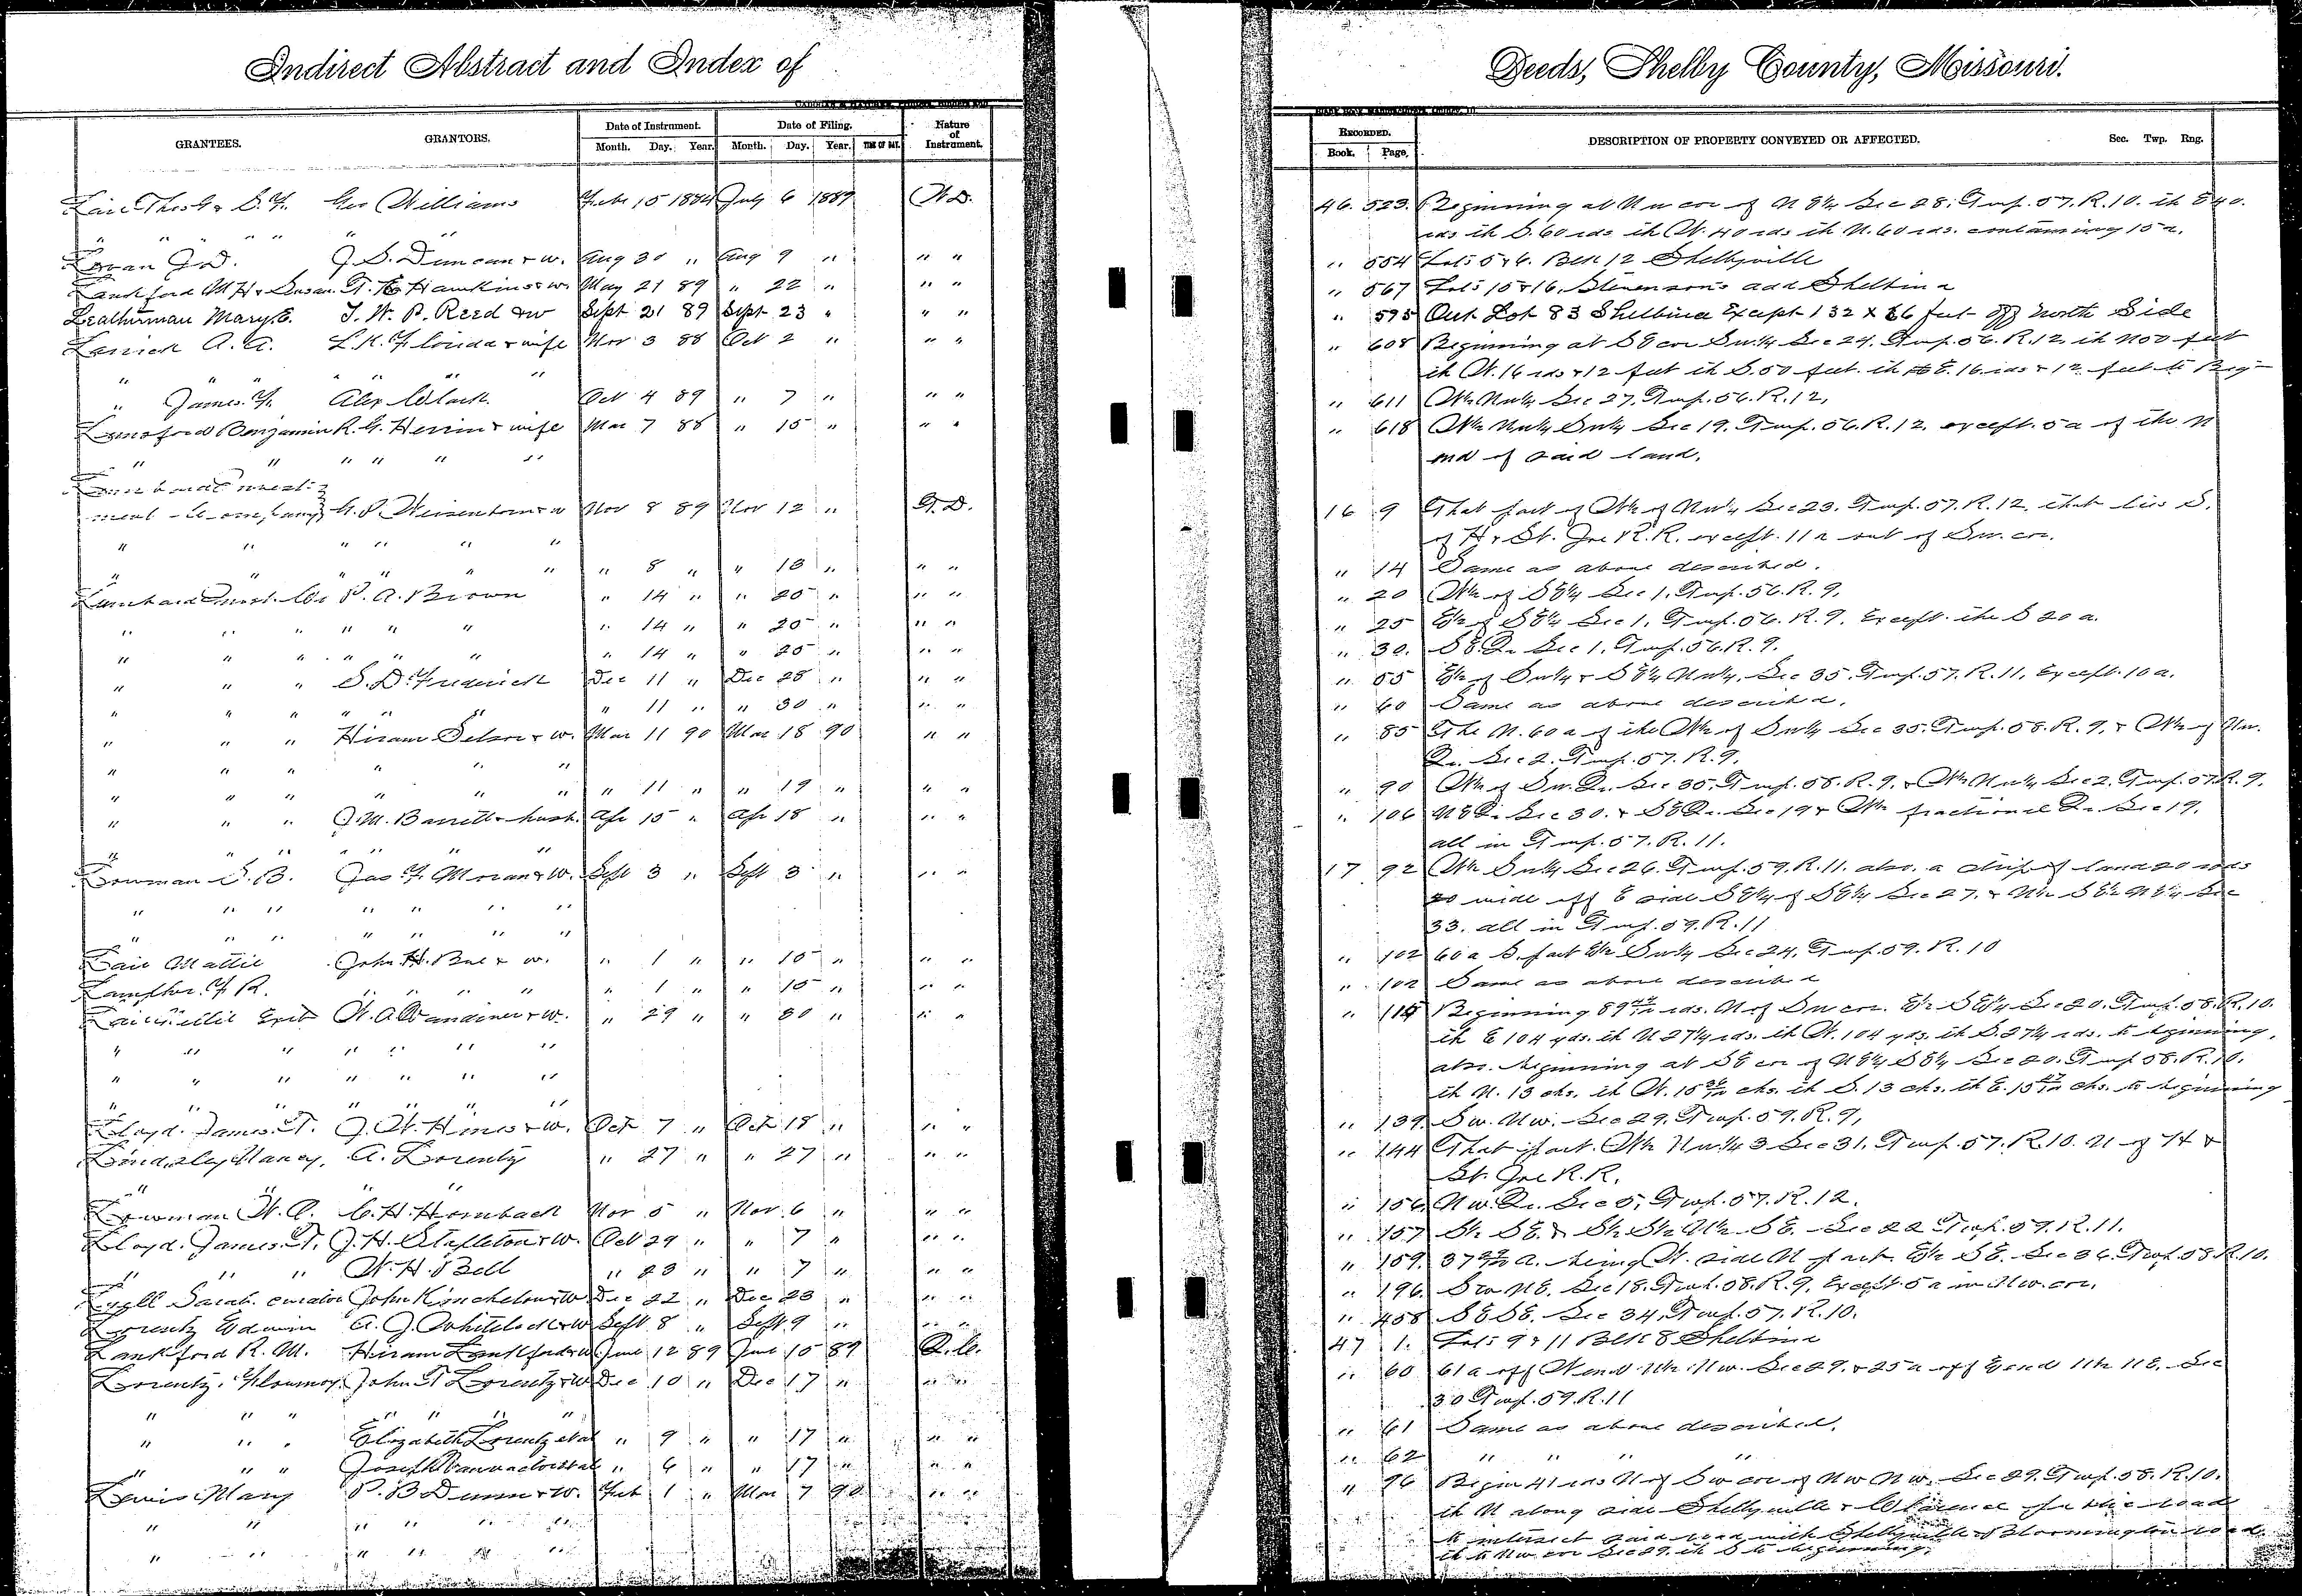 Indirect Abstract and Index of
Deeds, Shelby County, Missouri.
GRANTEES. GRANTORS. Date of Instrument. Month. Day. Year. Date of Filing. Month. Day. Year. TIME OF DAY. Nature of Instrument.
RECORDED. Book. Page. DESCRIPTION OF PROPERTY CONVEYED OR AFFECTED. Sec. Twp. Rng.
Lair Thos G & S. F. Geo Williams Feb 15 1884 July 6 1889 W.D. 46. 523. Beginning at Nw cor of N E¼ Sec 28, Twp. 57. R. 10. th E 40.
" " " " " " rds th S. 60 rds th W. 40 rds th N. 60 rds. containing 15 a.
Logan J. D. J. S. Duncan & w. Aug 30 " Aug 9 " " " " 554 Lots 5 & 6. Blk 12 Shelbyville
Lankford M H & Susan T. E Hawkins & w. May 21 89 " 22 " " " " 567 Lots 15 & 16, Stevenson's add Shelbina
Leatherman Mary E. T. W. P. Reed & w Sept 21 89 Sept 23 " " " " 595 Out Lot 83 Shelbina Except 132 x 66 feet off North Side
A. A. L. K. Florida & wife Nov 3 88 Oct 2 " " " " 608 Beginning at SE cor Sw¼ Sec 24. Twp. 56. R. 12. th N 50 feet
" " " " " " th W. 16 rds & 12 feet th S. 50 feet. th E. 16 rds & 12 feet to Beg
" James F. Alex Clark. Oct 4 89 " 7 " " " " 611 W½ Nw¼ Sec 27, Twp. 56. R. 12,
Lunsford Benjamin R. G. Herrin & wife Mar 7 88 " 15 " " " " 618 W½ Nw¼ Sw¼ Sec 19. Twp. 56. R. 12. except. 5 a of the N
" " " " " " end of said land.
Lombard Invest-
ment Company G. P. Nov 8 89 Nov 12 " T.D. 16 9 That part of W½ of Nw¼ Sec 23. Twp. 57. R. 12. that lies S.
" " " " " " of H & St. Joe R. R. except. 11 a out of Sw. cor.
" " " " " " " 8 " " 13 " " " " 14 Same as above described.
Lombard Invest. Co P. A. Brown " 14 " " 20 " " " " 20 W½ of SE¼ Sec 1, Twp. 56. R. 9.
" " " " " " " 14 " " 20 " " " " 25 E½ of SE¼ Sec 1, Twp. 56. R. 9. Except. the S 20 a.
" " " " " " " 14 " " 20 " " " " 30. SE. Qr Sec 1, Twp. 56. R. 9.
" " " S. D. Frederick Dec 11 " Dec 28 " " " " 55 E½ of Sw¼ & SE¼ Nw¼, Sec 35. Twp. 57. R. 11, Except. 10 a.
" " " " " " " 11 " " 30 " " " " 60 Same as above described.
" " " Hiram Selsor & w. Mar 11 90 Mar 18 90 " " " 85 The N. 60 a of the W½ of Sw¼ Sec 35. Twp. 58. R. 9, & W½ of Nw.
" " " " " " Qr. Sec 2. Twp. 57. R. 9.
" " " " " " " 11 " " 19 " " " " 90 W½ of Sw. Qr. Sec 35, Twp. 58. R. 9, & W½ Nw¼ Sec 2. Twp. 57. R. 9,
" " " J. M. Barrett & husb. Apr 15 " Apr 18 " " " " 106 NE Qr Sec 30. & SE Qr. Sec 19 & W½ fractional Qr Sec 19,
" " " " " " all in Twp. 57. R. 11.
Bowman S. B. Jas F. Moran & w. Sept 3 " Sept 3 " " " 17 92 W½ Sw¼ Sec 26. Twp. 59. R. 11. also. a strip of land 20 rods
" " " " " " " 20 wide off E side SE¼ of SE¼ Sec 27. & N½ SE½ NE¼ Sec
" " " " " " " 33. all in Twp. 59. R. 11
Lair Mattie John H. & w. " 1 " " 10 " " " " 102 60 a S. part E½ Sw¼ Sec 24, Twp. 59. R. 10
F. R. " " " " " 1 " " 10 " " " " 102 Same as above described
W. A. Vandiver & w. " 29 " " 30 " " " " Beginning 89 rds. N of Sw cor. E½ SE¼ Sec 20. Twp. 58. R. 10.
" " " " " " " th E 104 yds. th N 27¼ rds. th W. 104 yds. th S. 27¼ rds. to beginning,
" " " " " " " also. beginning at SE cor of NE¼ SE¼ Sec 20. Twp 58. R. 10,
" " " " " " " th N. 13 chs. th W. 15 chs. th S. 13 chs. th E. 15 chs. to beginning
Lloyd. James. T. J. W. Hines & w. Oct 7 " Oct 18 " " " " 139. Sw. Nw. Sec 29, Twp. 59. R. 9,
Lindsley Nancy, A. Lorentz " 27 " " 27 " " " " 144 That part. W½ Nw¼ 3 Sec 31, Twp. 57. R. 10. N of H &
" " " " St. Joe R. R.
Bowman W. P. C. H. Hornback Nov 5 " Nov. 6 " " " " 156. Nw. Qr. Sec 5, Twp. 57. R. 12.
Lloyd. James. T. J. H. Stapleton & w. Oct 29 " " 7 " " " " 157 S½ SE. & S½ S½ N½ SE. Sec 22 Twp. 59. R. 11.
" " " W. H. Bell " 23 " " 7 " " " " 159. 37 a. being W. side N part E½ SE. Sec 36. Twp. 58 R. 10.
Lyell Sarah. curator John Kincheloe & w. Dec 22 " Dec 23 " " " " 196. Sw NE. Sec 18. Twp. 58. R. 9, Except 5 a in Nw. cor,
Lorentz Edwin A. J. Whitelock & w Sept 8 " Sept 9 " " " " 458 SE SE. Sec 34, Twp. 57. R. 10.
Lankford R. M. Hiram Lankford & w June 12 89 June 15 89 Q.C. 47 1. Lots 9 & 11 Blk 8 Shelbina
Lorentz, Flournoy. John T Lorentz & w Dec 10 " Dec 17 " " " " 60 61 a off W end N½ Nw. Sec 29. & 25 a off E end N½ NE. Sec
" " " " " " " 30 Twp. 59. R. 11
" " " Elizabeth Lorentz et al " 9 " " 17 " " " " 61 Same as above described.
" " " Joseph Vanvactor et al " 6 " " 17 " " " " 62 " " " "
Lewis Mary P. B Dunn & w. Feb 1 " Mar 7 90 " " " 76 Begin 41 rds N of Sw cor of Nw Nw. Sec 29. Twp. 58. R. 10.
" " " " " " th N along side Shelbyville & Clarence public road
" " " " " " to intersect said road with Shelbyville & Bloomington road
th to Nw. cor Sec 29, th S to beginning.